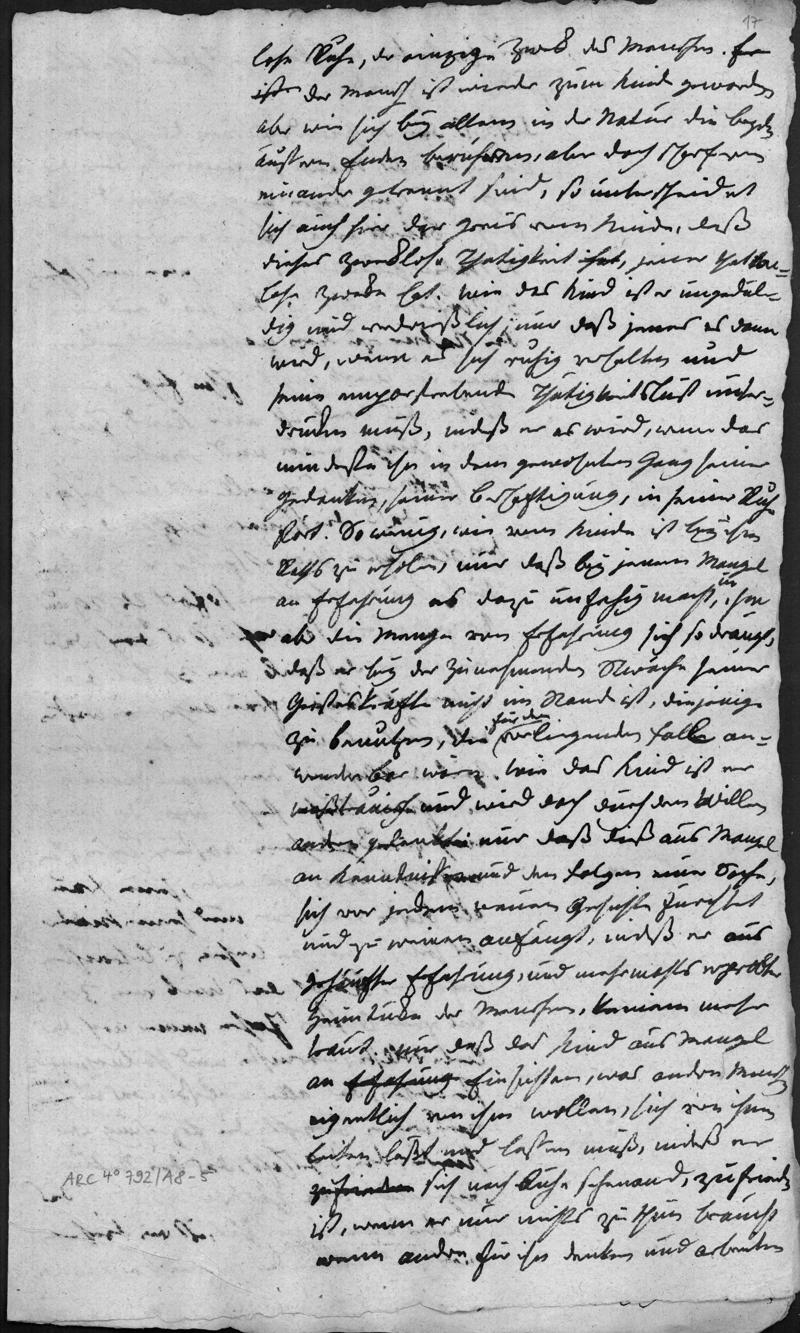 17
lose Ruhe, der einzige Zweck des Menschen.
der Mensch ist wieder zum Kinde geworden
aber wie sich bey allem in der Natur die beyden
äußern Enden berühren, aber doch scharf von
einander getrennt sind, so unterscheidet
sich auch hier der Greis vom Kinde, daß
dieses zwecklose Thätigkeit hat, jener thaten=
lose Zwecke hat. Wie das Kind ist er ungedul=
dig und verdrießlich, nur daß jenes es dann
wird, wenn es sich ruhig verhalten und
seine emporstrebende Thätigkeitslust unter=
drücken muß, indeß er es wird, wenn das
mindeste ihn in dem gewohnten Gang seiner
Gedanken, seiner Beschäftigung, in seiner Ruhe
stört. So wenig, wie vom Kinde ist bey ihm
Raths zu erholen, nur daß bey jenem Mangel
an Erfahrung es dazu unfähig macht, ihm
aber die Menge von Erfahrung sich so drängt,
daß er bey der zunehmenden Schwäche seiner
Geisteskräfte nicht im Stande ist, diejenige
zu benutzen, die für den vorliegenden Fall an=
wendbar wäre. Wie das Kind ist er
mißtrauisch und wird doch durch den Willen
andrer gelenkt nur daß dieß aus Mangel
an Kenntniß und den Folgen einer Sache,
sich vor jedem neuen Gesichte fürchtet
und zu weinen anfängt, indeß er aus
gehäufter Erfahrung, und mehrmahls erprobter
Heimtücke der Menschen, keinem mehr
traut. nur daß das Kind aus Mangel
an Erfahrung Einsichten, was andere Menschen
eigentlich von ihm wollen, sich von ihnen
leiten läßt und lassen muß, indeß er
zufrieden sich nach Ruhe sehnend, zufrieden
ist, wenn er nur nichts zu thun braucht
wenn andre für ihn denken und arbeiten
ARC 4° 792/A8-5